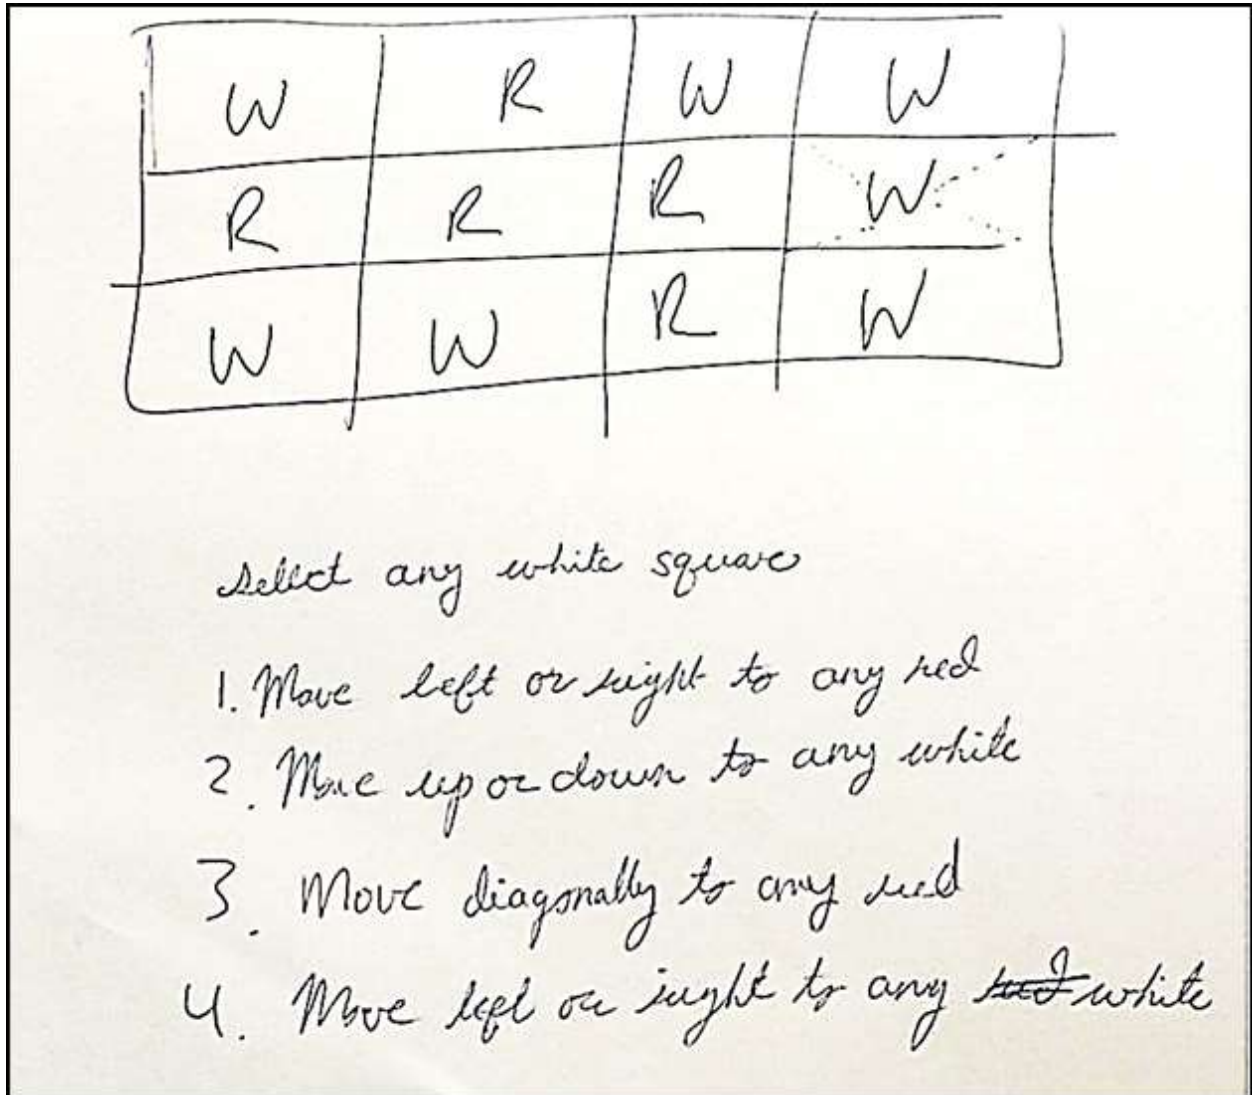 W R W W
R R R W
W W R W
Select any white square
1. Move left or right to any red
2. Move up or down to any white
3. Move diagonally to any red
4. Move left or right to any red white